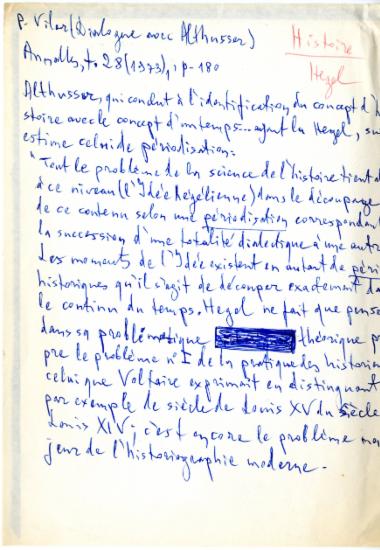 P. Vilar (Dialogue avec Althusser)
Annales, t. 28 (1973), p. 180
Histoire
Hegel
Althusser, qui conduit à l'identification du concept d'hi
stoire avec le concept d'un temps... ayant lu Hegel, sur
estime celui de périodisation:
"Tout le problème de la science de l'histoire tient à
à ce niveau (l'Idée hégélienne) dans le découpage
de ce contenu selon une périodisation correspondant
la succession d'une totalité dialectique à une autre
Les moments de l'Idée existent en autant de péri
historiques qu'il s'agit de découper exactement da
le continu du temps. Hegel ne fait que penser
dans sa problématique théorique pro
pre le problème nº I de la pratique des historien
celui que Voltaire exprimait en distinguant
par exemple de siècle de Louis XV du siècle
Louis XIV; c'est encore le problème ma
jeur de l'historiographie moderne.